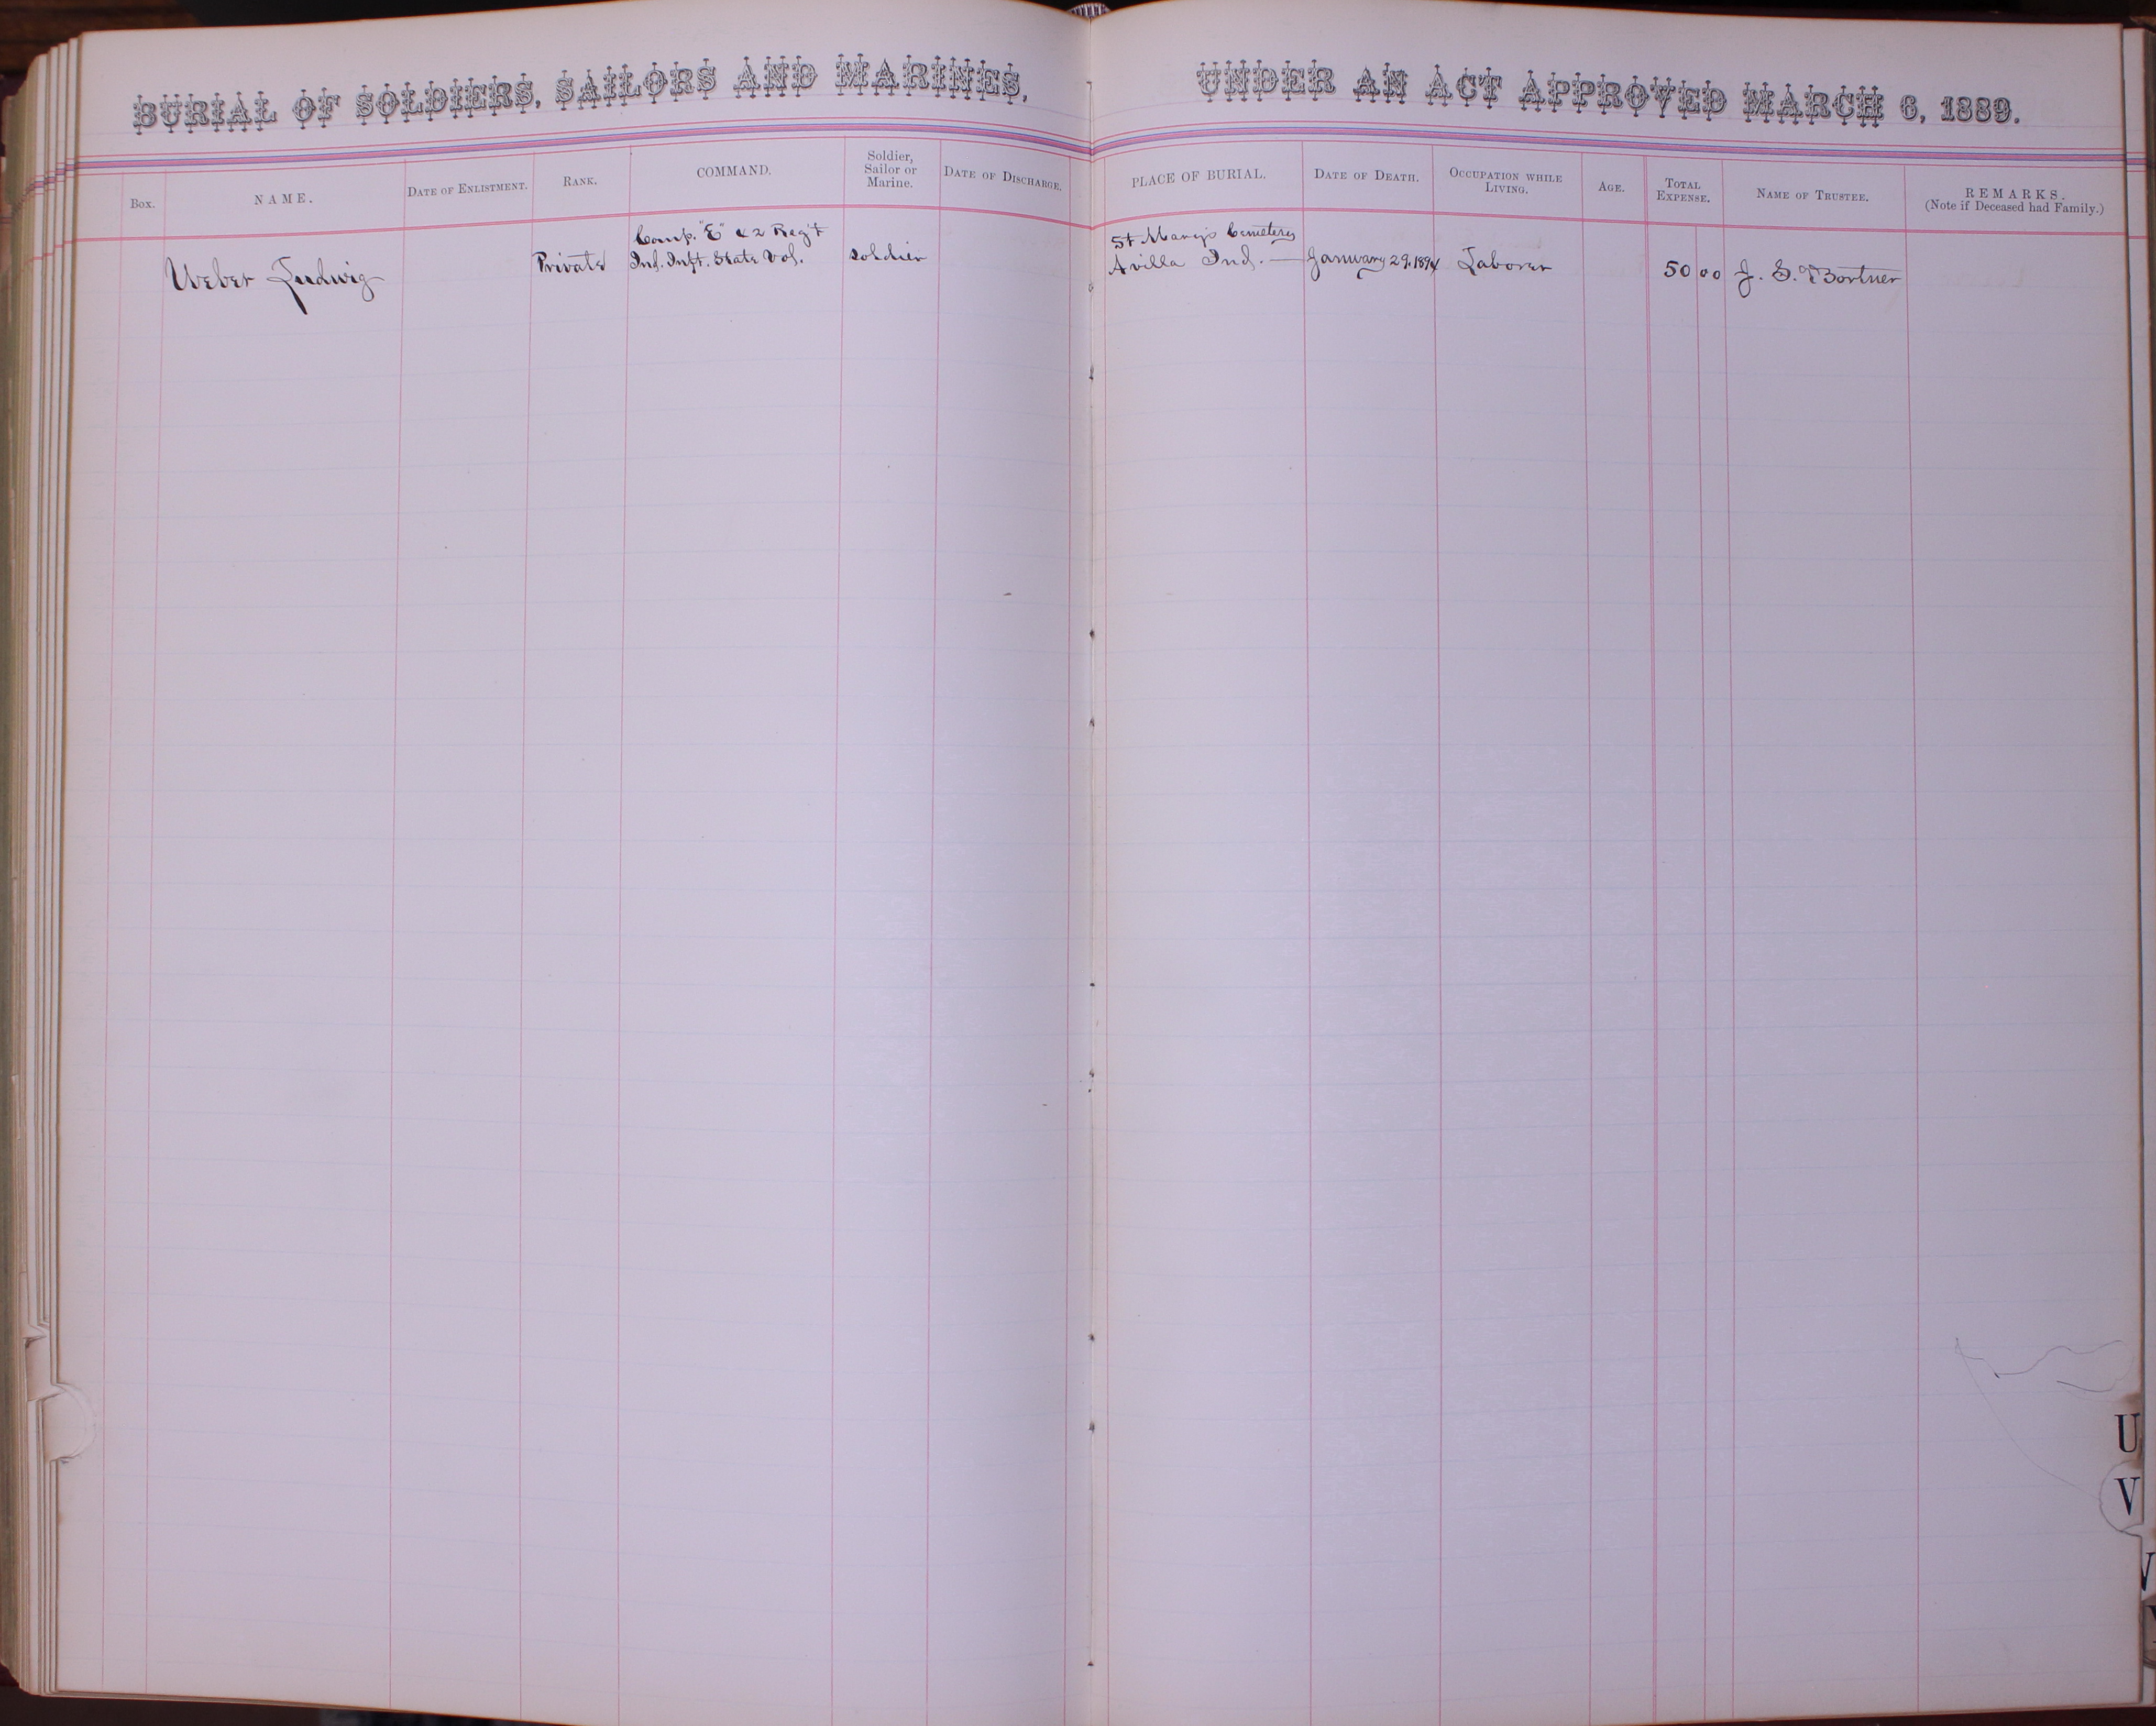 BURIAL OF SOLDIERS, SAILORS AND MARINES, UNDER AN ACT APPROVED MARCH 6, 1889.
Box.
NAME.
DATE OF ENLISTMENT.
RANK.
COMMAND.
Soldier,
Sailor or
Marine.
DATE OF DISCHARGE.
PLACE OF BURIAL.
DATE OF DEATH.
OCCUPATION WHILE
LIVING.
AGE.
TOTAL
EXPENSE.
NAME OF TRUSTEE.
REMARKS.
(Note if Deceased had Family.)
Weber Ludwig
Private
Comp. "E" 42 Reg't
Ind. Inft. State Vol.
Soldier
St Mary's Cemetery
Avilla Ind. —
January 29. 1894
Laborer
50 00
J. S. Bortner
U
V